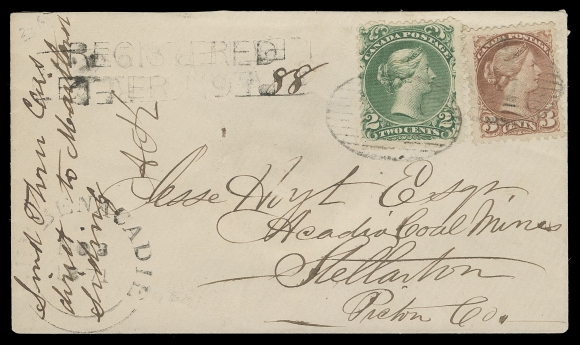 REGISTERED
88
CANADA POSTAGE
2 2
TWO CENTS
CANADA POSTAGE
3 CENTS 3
Send Three Cars
direct to Maitland
Siding
AK
ACADIE
Jesse Hoyt Esqr
Acadia Coal Mines
Stellarton
Pictou Co.